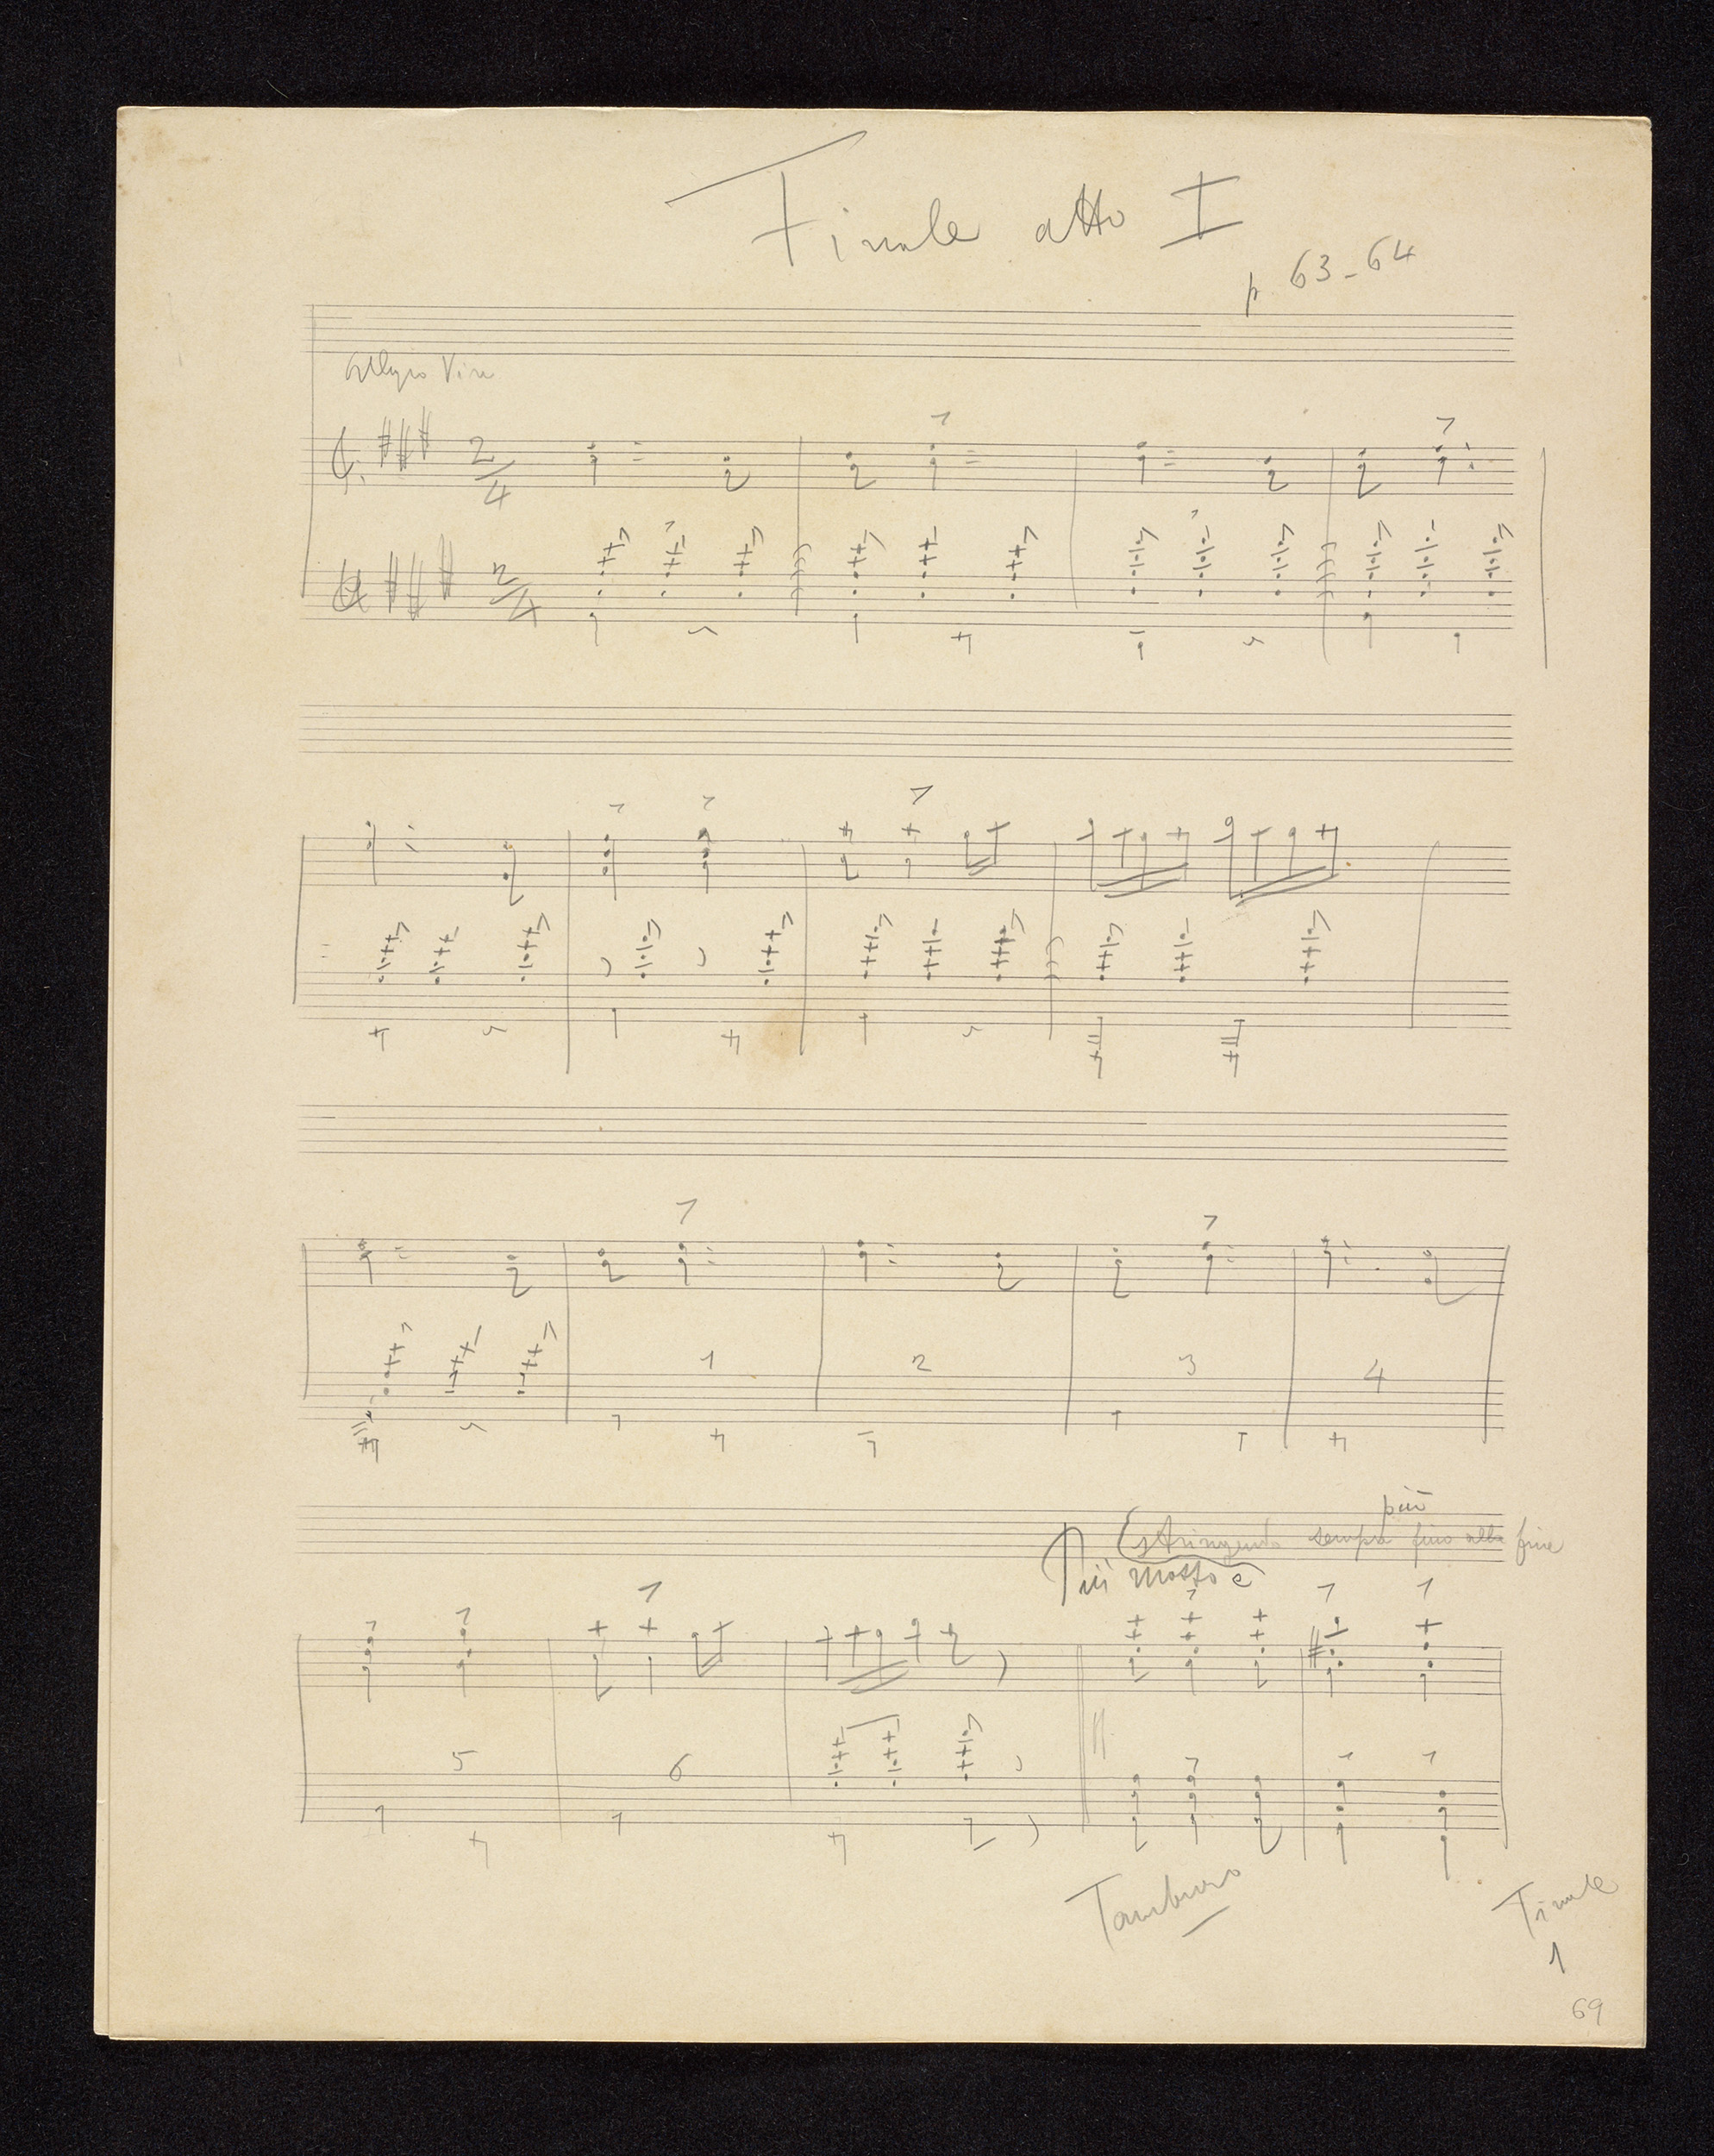 Finale atto I
p. 63-64
Allegro Vivo
2/4
2/4
1 2 3 4
più
(stringendo sempre fino alla fine
Più mosso e
5 6
Tamburo
Finale
1
69